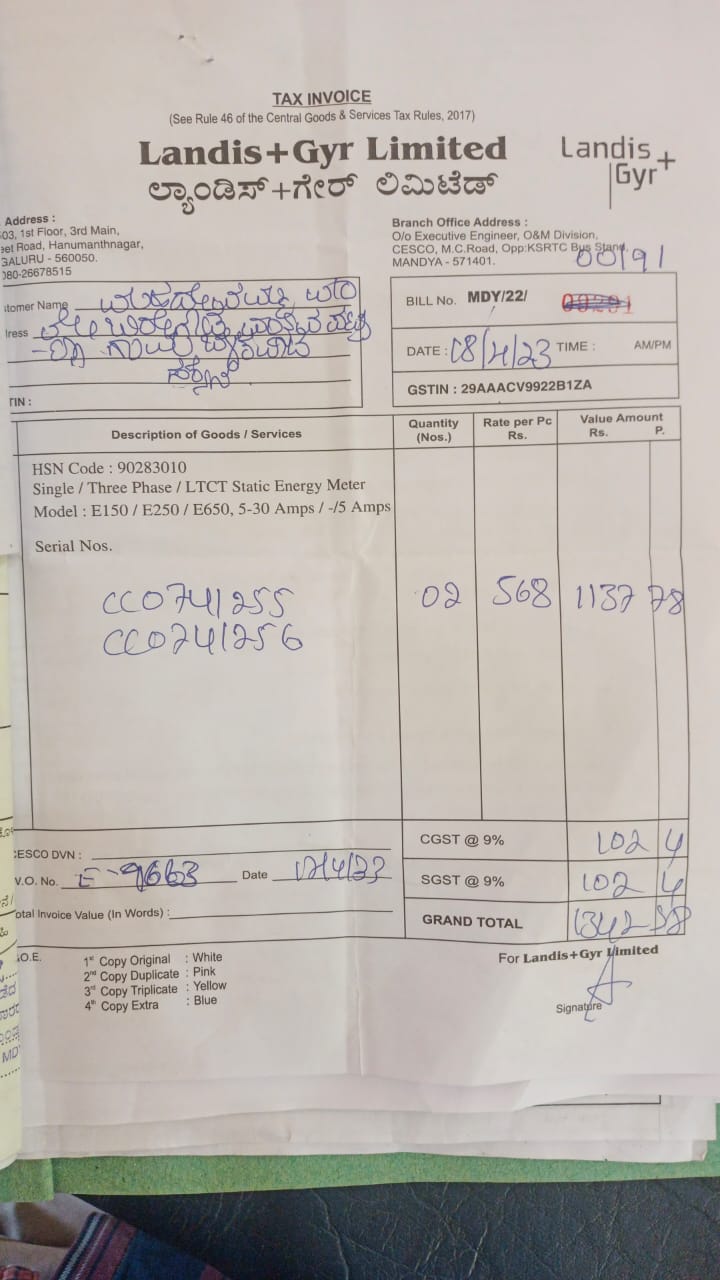 TAX INVOICE
(See Rule 46 of the Central Goods & Services Tax Rules, 2017)
Landis+Gyr Limited
ಲ್ಯಾಂಡಿಸ್+ಗೇರ್ ಲಿಮಿಟೆಡ್
Landis+
Gyr
Address :
03, 1st Floor, 3rd Main,
eet Road, Hanumanthnagar,
GALURU - 560050.
080-26678515
Branch Office Address :
O/o Executive Engineer, O&M Division,
CESCO, M.C.Road, Opp:KSRTC Bus Stand,
MANDYA - 571401.
00191
tomer Name
dress
TIN :
BILL No. MDY/22/
DATE : 08/4/23 TIME : AM/PM
GSTIN : 29AAACV9922B1ZA
Description of Goods / Services
Quantity (Nos.)
Rate per Pc Rs.
Value Amount Rs. P.
HSN Code : 90283010
Single / Three Phase / LTCT Static Energy Meter
Model : E150 / E250 / E650, 5-30 Amps / -/5 Amps
Serial Nos.
CC0741255 02 568 1137 78
CC0741256
CGST @ 9% 102 4
SGST @ 9% 102 4
GRAND TOTAL 1342 58
CESCO DVN :
V.O. No. E-9663 Date 12/4/23
otal Invoice Value (In Words) :
.O.E.
1st Copy Original : White
2nd Copy Duplicate : Pink
3rd Copy Triplicate : Yellow
4th Copy Extra : Blue
For Landis+Gyr Limited
Signature